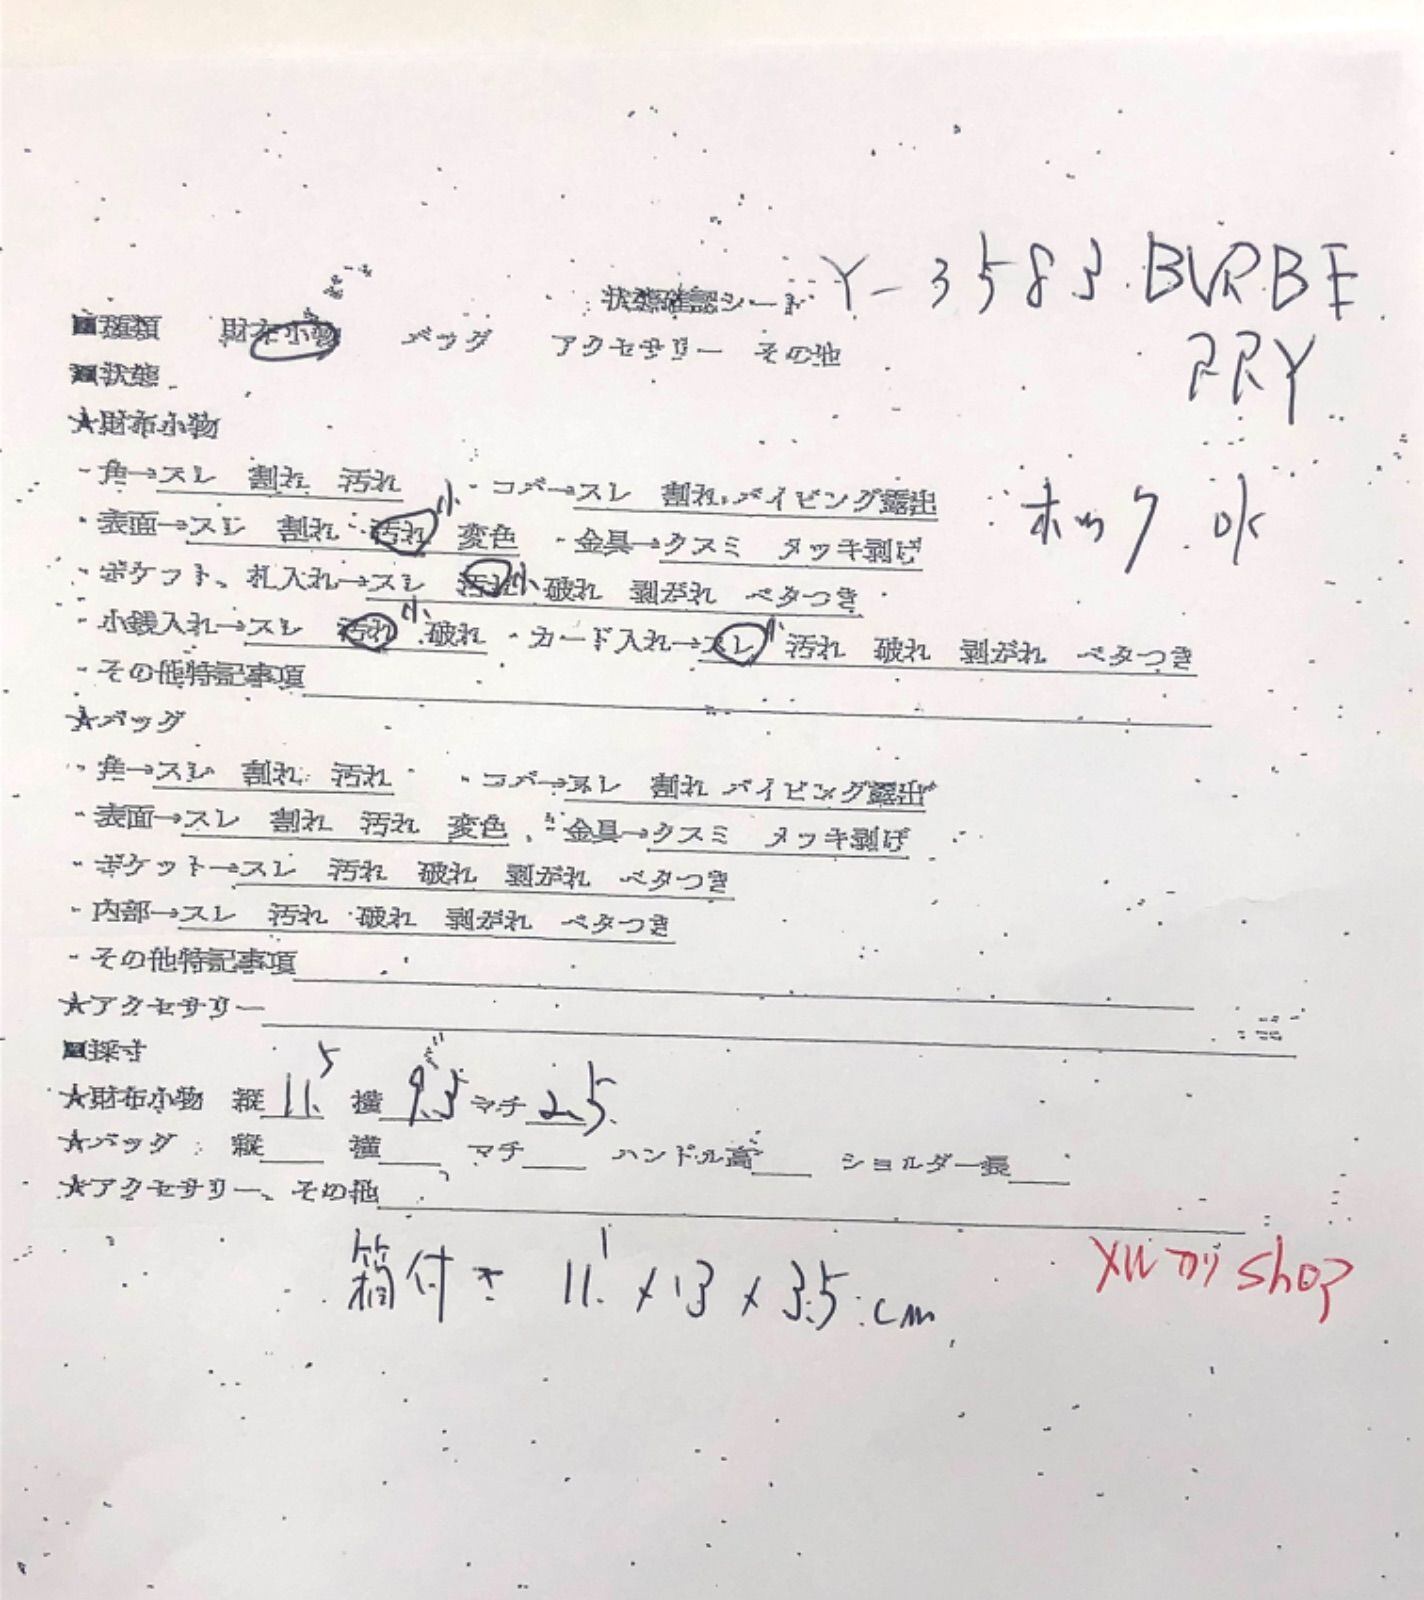 状態確認シート Y-3583 BURBE
RRY
■種類 財布小物 バッグ アクセサリー その他
■状態
★財布小物
・角→スレ 割れ 汚れ ・コバ→スレ 割れ パイピング露出
ホック OK
・表面→スレ 割れ 汚れ小 変色 ・金具→クスミ メッキ剥げ
・ポケット、札入れ→スレ 汚れ小 破れ 剥がれ ベタつき
・小銭入れ→スレ 汚れ小 破れ ・カード入れ→スレ小 汚れ 破れ 剥がれ ベタつき
・その他特記事項
★バッグ
・角→スレ 割れ 汚れ ・コバ→スレ 割れ パイピング露出
・表面→スレ 割れ 汚れ 変色 ・金具→クスミ メッキ剥げ
・ポケット→スレ 汚れ 破れ 剥がれ ベタつき
・内部→スレ 汚れ 破れ 剥がれ ベタつき
・その他特記事項
★アクセサリー
■採寸
★財布小物 縦 11.5 横 9.5 マチ 2.5
★バッグ 縦 横 マチ ハンドル高 ショルダー長
★アクセサリー、その他
箱付き 11.1×13×3.5cm
メルカリshop